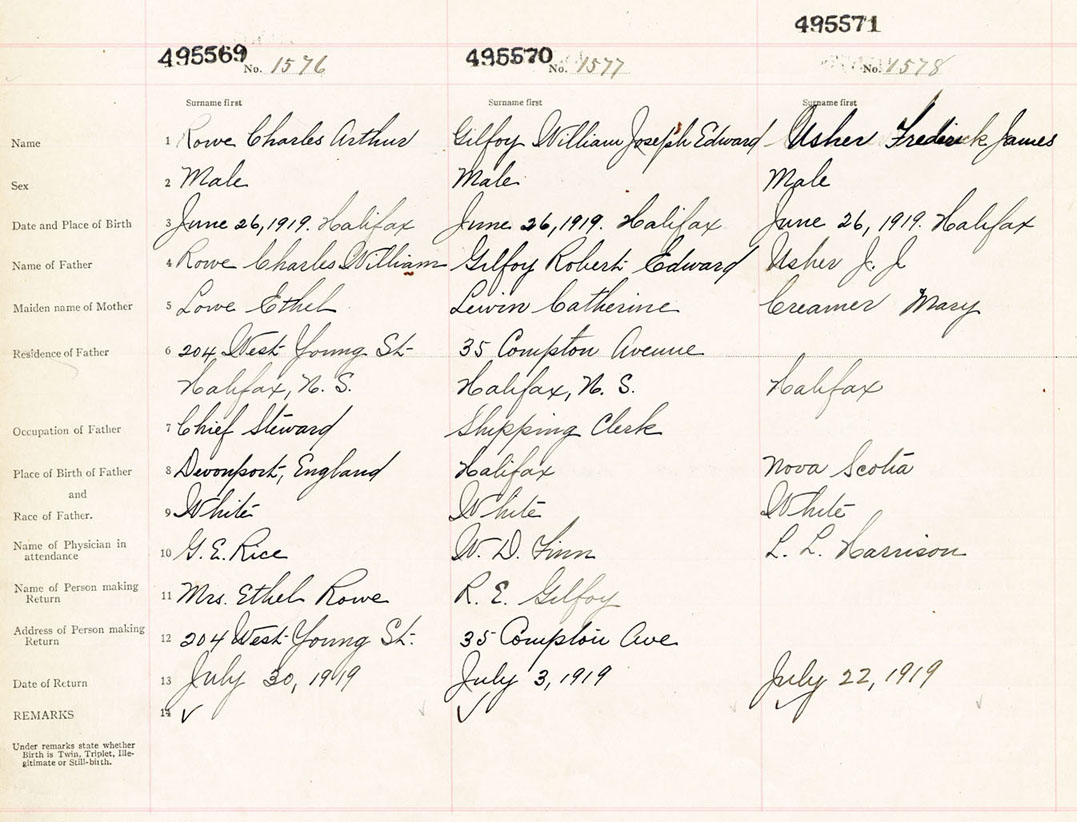 495571
495569 495570
No. 1576 No. 1577 No. 1578
Surname first Surname first Surname first
Name 1 Rowe Charles Arthur Gilfoy William Joseph Edward Usher Frederick James
Sex 2 Male Male Male
Date and Place of Birth 3 June 26, 1919. Halifax June 26, 1919. Halifax June 26, 1919. Halifax
Name of Father 4 Rowe Charles William Gilfoy Robert Edward Usher J. J
Maiden name of Mother 5 Lowe Ethel Lewin Catherine Creamer Mary
Residence of Father 6 204 West Young St. 35 Compton Avenue
Halifax, N. S. Halifax, N. S. Halifax
Occupation of Father 7 Chief Steward Shipping Clerk
Place of Birth of Father 8 Devonport, England Halifax Nova Scotia
and
Race of Father. 9 White White White
Name of Physician in
attendance 10 G. E. Rice W. D. Finn L. L. Harrison
Name of Person making
Return 11 Mrs. Ethel Rowe R. E. Gilfoy
Address of Person making
Return 12 204 West Young St. 35 Compton Ave
Date of Return 13 July 30, 1919 July 3, 1919 July 22, 1919
REMARKS 14
Under remarks state whether
Birth is Twin, Triplet, Ille-
gitimate or Still-birth.